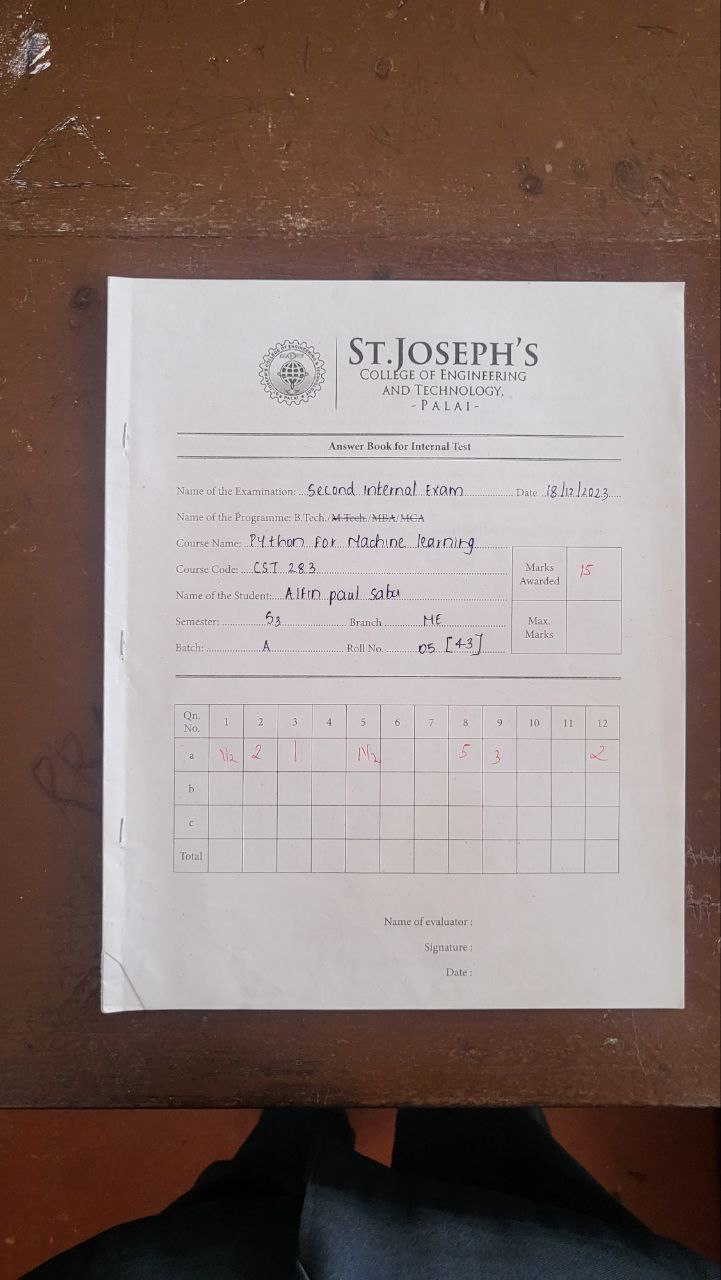 ST.JOSEPH'S
COLLEGE OF ENGINEERING
AND TECHNOLOGY,
- PALAI -
Answer Book for Internal Test
Name of the Examination: Second Internal Exam Date 18/12/2023
Name of the Programme: B.Tech./M.Tech./MBA/MCA
Course Name: Python For Machine learning
Course Code: CST 283
Marks Awarded 15
Name of the Student: Alfin paul Sabu
Semester: S3 Branch ME
Max. Marks
Batch: A Roll No. 05 [43]
Qn. No. 1 2 3 4 5 6 7 8 9 10 11 12
a 1½ 2 1 1½ 5 3 2
b
c
Total
Name of evaluator :
Signature :
Date :